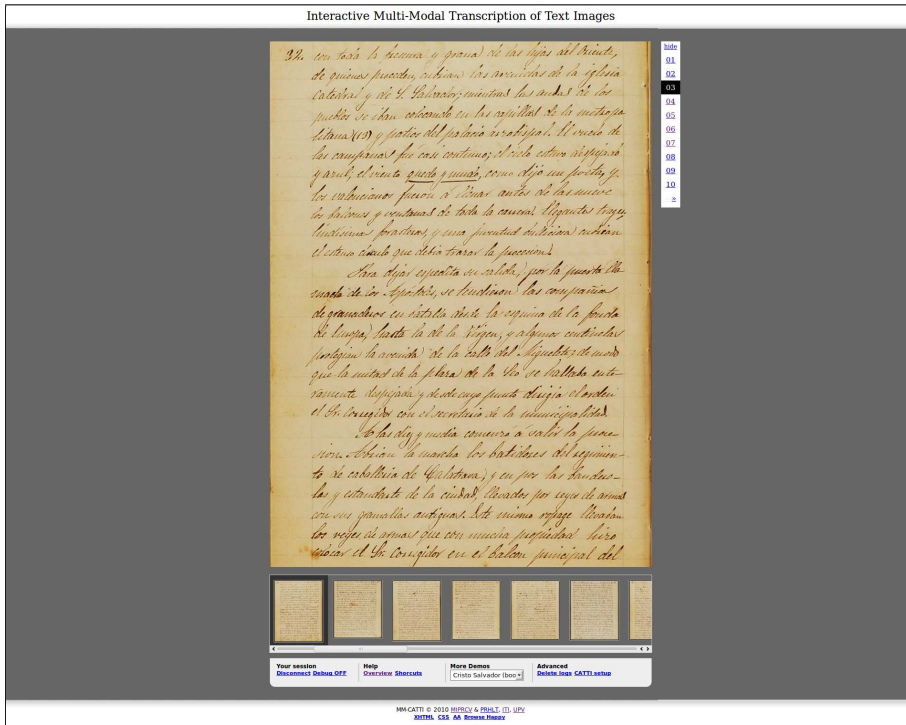 Interactive Multi-Modal Transcription of Text Images
hide
01
02
03
04
05
06
07
08
09
10
»
32. con toda la finura y grana de las hijas del Oriente,
de quienes proceden, cubrian las avenidas de la iglesia
catedral y de S. Salvador; mientras las andas de los
pueblos se iban colocando en las capillas de la metropo
litana (13) y patios del palacio arzobispal. El vuelo de
las campanas fué casi continuo; el cielo estuvo despejado
y azul; el viento quedo y mudo, como dijo un poeta, y
los valencianos fueron á llenar antes de las nueve
los balcones y ventanas de toda la carrera. Elegantes trages,
lindisimas forasteras, y una juventud bulliciosa cubrian
el estenso círculo que debia trazar la procesion.
Para dejar espedita su salida, por la puerta lla
mada de los Apóstoles, se tendieron las compañias
de granaderos en batalla desde la esquina de la fonda
de Europa, hasta la de la Vírgen; y algunos centinelas
protegian la avenida de la calle del Miguelete; de modo
que la mitad de la plaza de la Seo se hallaba ente-
ramente despejada y desde cuyo punto dirigia el orden
el Sr. Corregidor con el secretario de la municipalidad.
A las diez y media comenzó á salir la proce-
sion. Abrian la marcha los batidores del regimien-
to de caballeria de Calatrava; y en pos las bandero-
las y estandarte de la ciudad, llevados por reyes de armas
con sus gramallas antiguas. Este mismo ropage llevaban
los reyes de armas que con mucha propiedad hizo
colocar el Sr. Corregidor en el balcon principal del
Your session
Disconnect Debug OFF
Help
Overview Shorcuts
More Demos
Cristo Salvador (boo
Advanced
Delete logs CATTI setup
MM-CATTI © 2010 MIPRCV & PRHLT, ITI, UPV
XHTML CSS AA Browse Happy